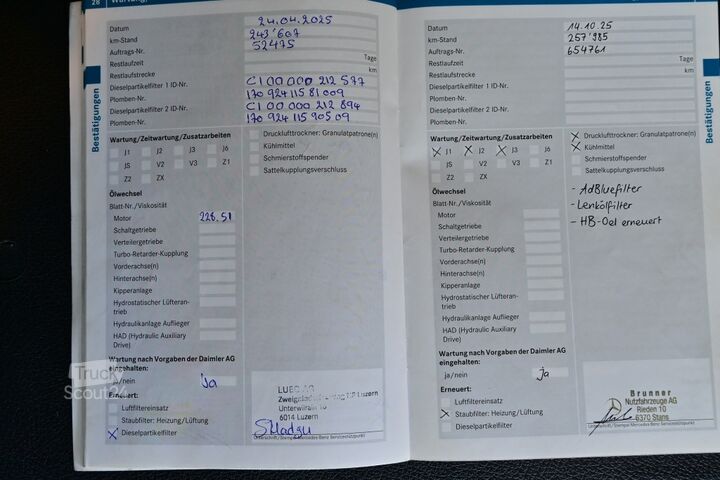 28
Bestätigungen
Datum 24.04.2025
km-Stand 243'607
Auftrags-Nr. 52475
Restlaufzeit Tage
Restlaufstrecke km
Dieselpartikelfilter 1 ID-Nr. C100 000 212 577
Plomben-Nr. 170 924 115 81 009
Dieselpartikelfilter 2 ID-Nr. C100 000 212 894
Plomben-Nr. 170 924 115 905 09
Wartung/Zeitwartung/Zusatzarbeiten
J1 J2 J3 J6
JS V2 V3 Z1
Z2 ZX
Drucklufttrockner: Granulatpatrone(n)
Kühlmittel
Schmierstoffspender
Sattelkupplungsverschluss
Ölwechsel
Blatt-Nr./Viskosität
Motor 228.51
Schaltgetriebe
Verteilergetriebe
Turbo-Retarder-Kupplung
Vorderachse(n)
Hinterachse(n)
Kipperanlage
Hydrostatischer Lüfteran-
trieb
Hydraulikanlage Auflieger
HAD (Hydraulic Auxiliary
Drive)
Wartung nach Vorgaben der Daimler AG
eingehalten:
ja/nein ja
Erneuert:
Luftfiltereinsatz
Staubfilter: Heizung/Lüftung
X Dieselpartikelfilter
LUEG AG
6014 Luzern
Unterschrift/Stempel Mercedes-Benz Servicestützpunkt
Truck
Scout24
Datum 14.10.25
km-Stand 257'985
Auftrags-Nr. 654761
Restlaufzeit Tage
Restlaufstrecke km
Dieselpartikelfilter 1 ID-Nr.
Plomben-Nr.
Dieselpartikelfilter 2 ID-Nr.
Plomben-Nr.
Wartung/Zeitwartung/Zusatzarbeiten
X J1 X J2 X J3 J6
JS V2 V3 Z1
Z2 ZX
X Drucklufttrockner: Granulatpatrone(n)
X Kühlmittel
Schmierstoffspender
Sattelkupplungsverschluss
- AdBluefilter
- Lenkölfilter
- HB-Oel erneuert
Ölwechsel
Blatt-Nr./Viskosität
Motor
Schaltgetriebe
Verteilergetriebe
Turbo-Retarder-Kupplung
Vorderachse(n)
Hinterachse(n)
Kipperanlage
Hydrostatischer Lüfteran-
trieb
Hydraulikanlage Auflieger
HAD (Hydraulic Auxiliary
Drive)
Wartung nach Vorgaben der Daimler AG
eingehalten:
ja/nein ja
Erneuert:
Luftfiltereinsatz
X Staubfilter: Heizung/Lüftung
Dieselpartikelfilter
Brunner
Nutzfahrzeuge AG
Rieden 10
6370 Stans
Unterschrift/Stempel Mercedes-Benz Servicestützpunkt
Bestätigungen